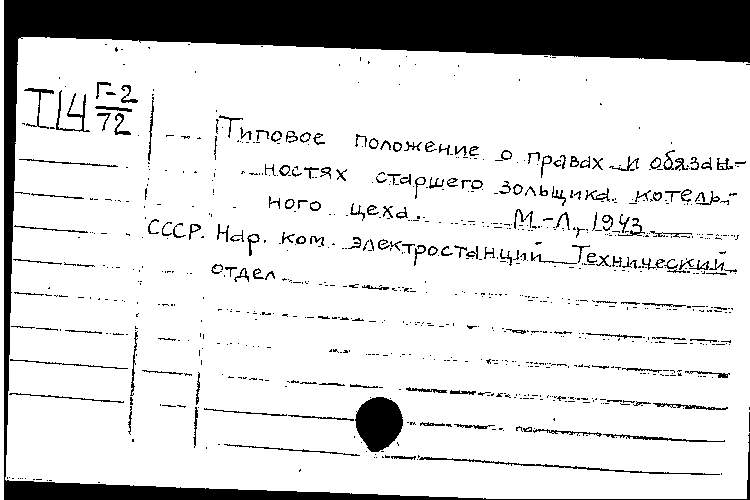 I14 Г-2
72
Типовое положение о правах и обязан-
ностях старшего зольщика котель-
ного цеха. М.-Л., 1943
СССР. Нар. ком. электростанций Технический
отдел